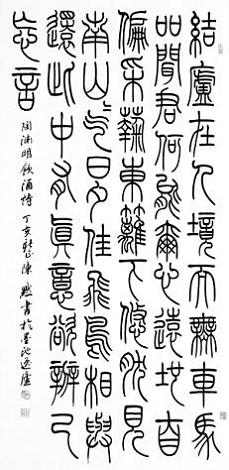 結廬在人境而無車馬
喧問君何能爾心遠地自
偏采菊東籬下悠然見
南山〻气日夕佳飛鳥相與
還此中有真意欲辨已
忘言
陶淵明飲酒詩 丁亥 陳默書於墨池逸廬